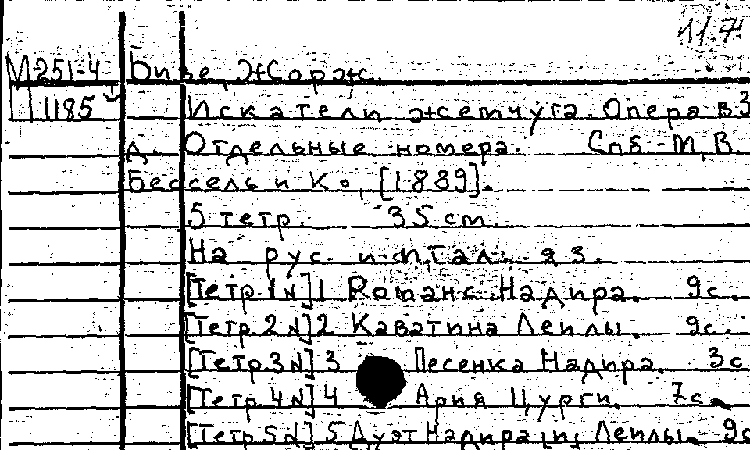 11.7
М251-4 Бизе, Жорж.
1185 Искатели жемчуга. Опера в 3
д. Отдельные номера. Спб-М, В.
Бессель и Ко, [1889].
5 тетр. 35 cm.
На рус. и итал. яз.
[Тетр 1 N] 1 Романс Надира. 9с.
[Тетр 2 N] 2 Каватина Леилы. 9с.
[Тетр 3 N] 3 Песенка Надира. 3с
[Тетр 4 N] 4 Ария Цурги. 7с.
[Тетр 5 N] 5 Дуэт Надира и Леилы. 9с